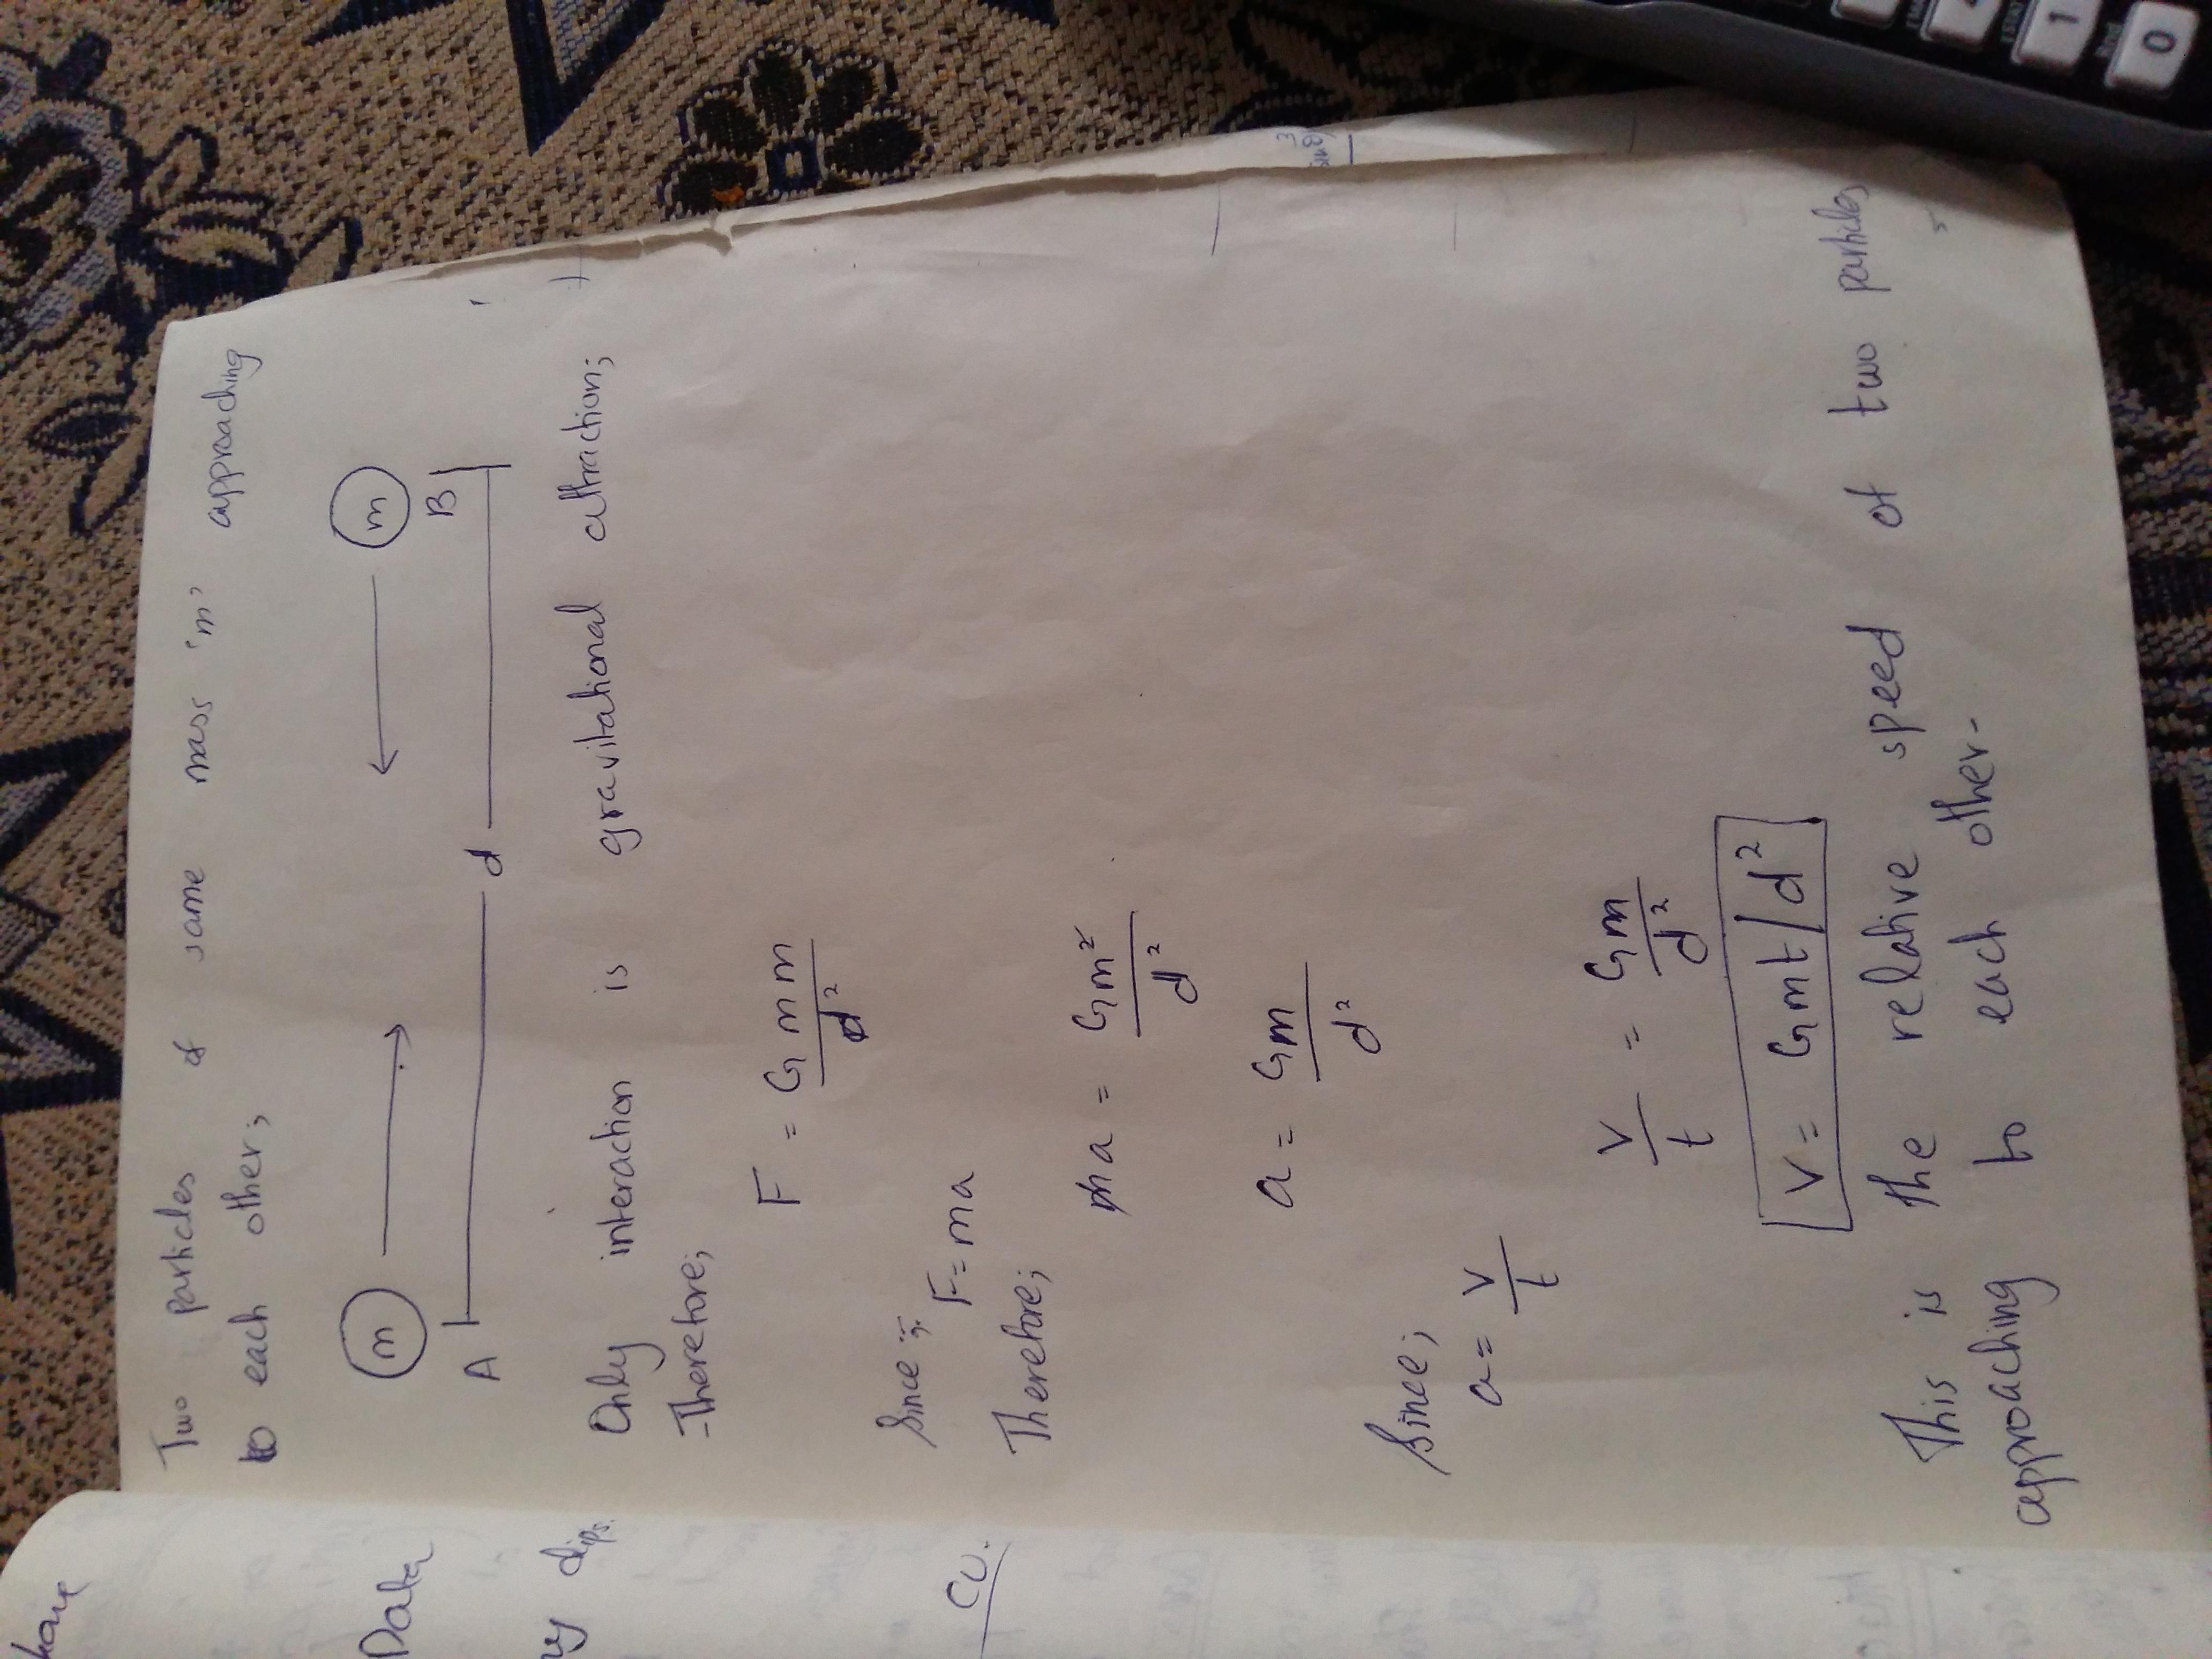 Two particles of same mass 'm' approaching
to each other;
m m
A d B
Only interaction is gravitational attraction;
Therefore;
F = Gmm/d²
Since;
F=ma
Therefore;
ma = Gm²/d²
a = Gm/d²
Since;
a = v/t
v/t = Gm/d²
v = Gmt/d²
This is the relative speed of two particles
approaching to each other-
have
Data
dips.
CU.
0
1